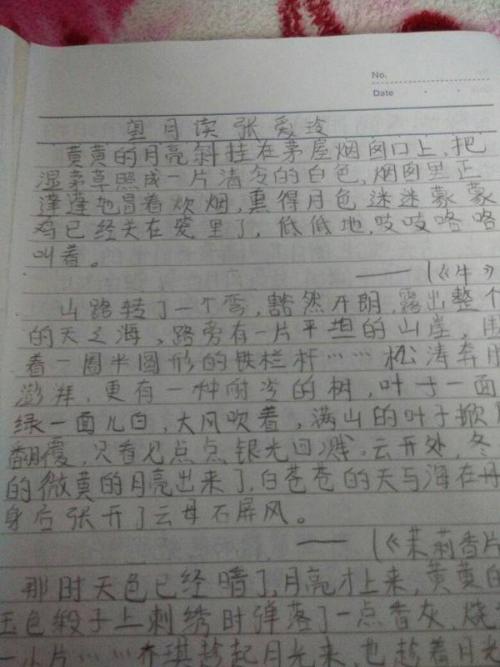 No.
Date
望月读张爱玲
黄黄的月亮斜挂在茅屋烟囱口上，把
湿茅草照成一片清冷的白色，烟囱里正
蓬蓬地冒着炊烟，熏得月色迷迷蒙蒙
鸡已经关在笼里了，低低地，吱吱咯咯
叫着。
——（《牛》
山路转了一个弯，豁然开朗，露出整个
的天与海，路旁有一片平坦的山崖，用
着一圈半圆形的铁栏杆……松涛奔腾
澎湃，更有一种耐冷的树，叶子一面
绿一面儿白，大风吹着，满山的叶子掀
翻覆，只看见点点银光四溅，云开处，冬
的微黄的月亮出来了，白苍苍的天与海在丹
身后张开了云母石屏风。
——（《茉莉香片
那时天色已经暗了，月亮才上来，黄黄的
玉色缎子上刺绣时弹落了一点香灰，烧
一小片……乔琪趁起月光来，也趁着月光